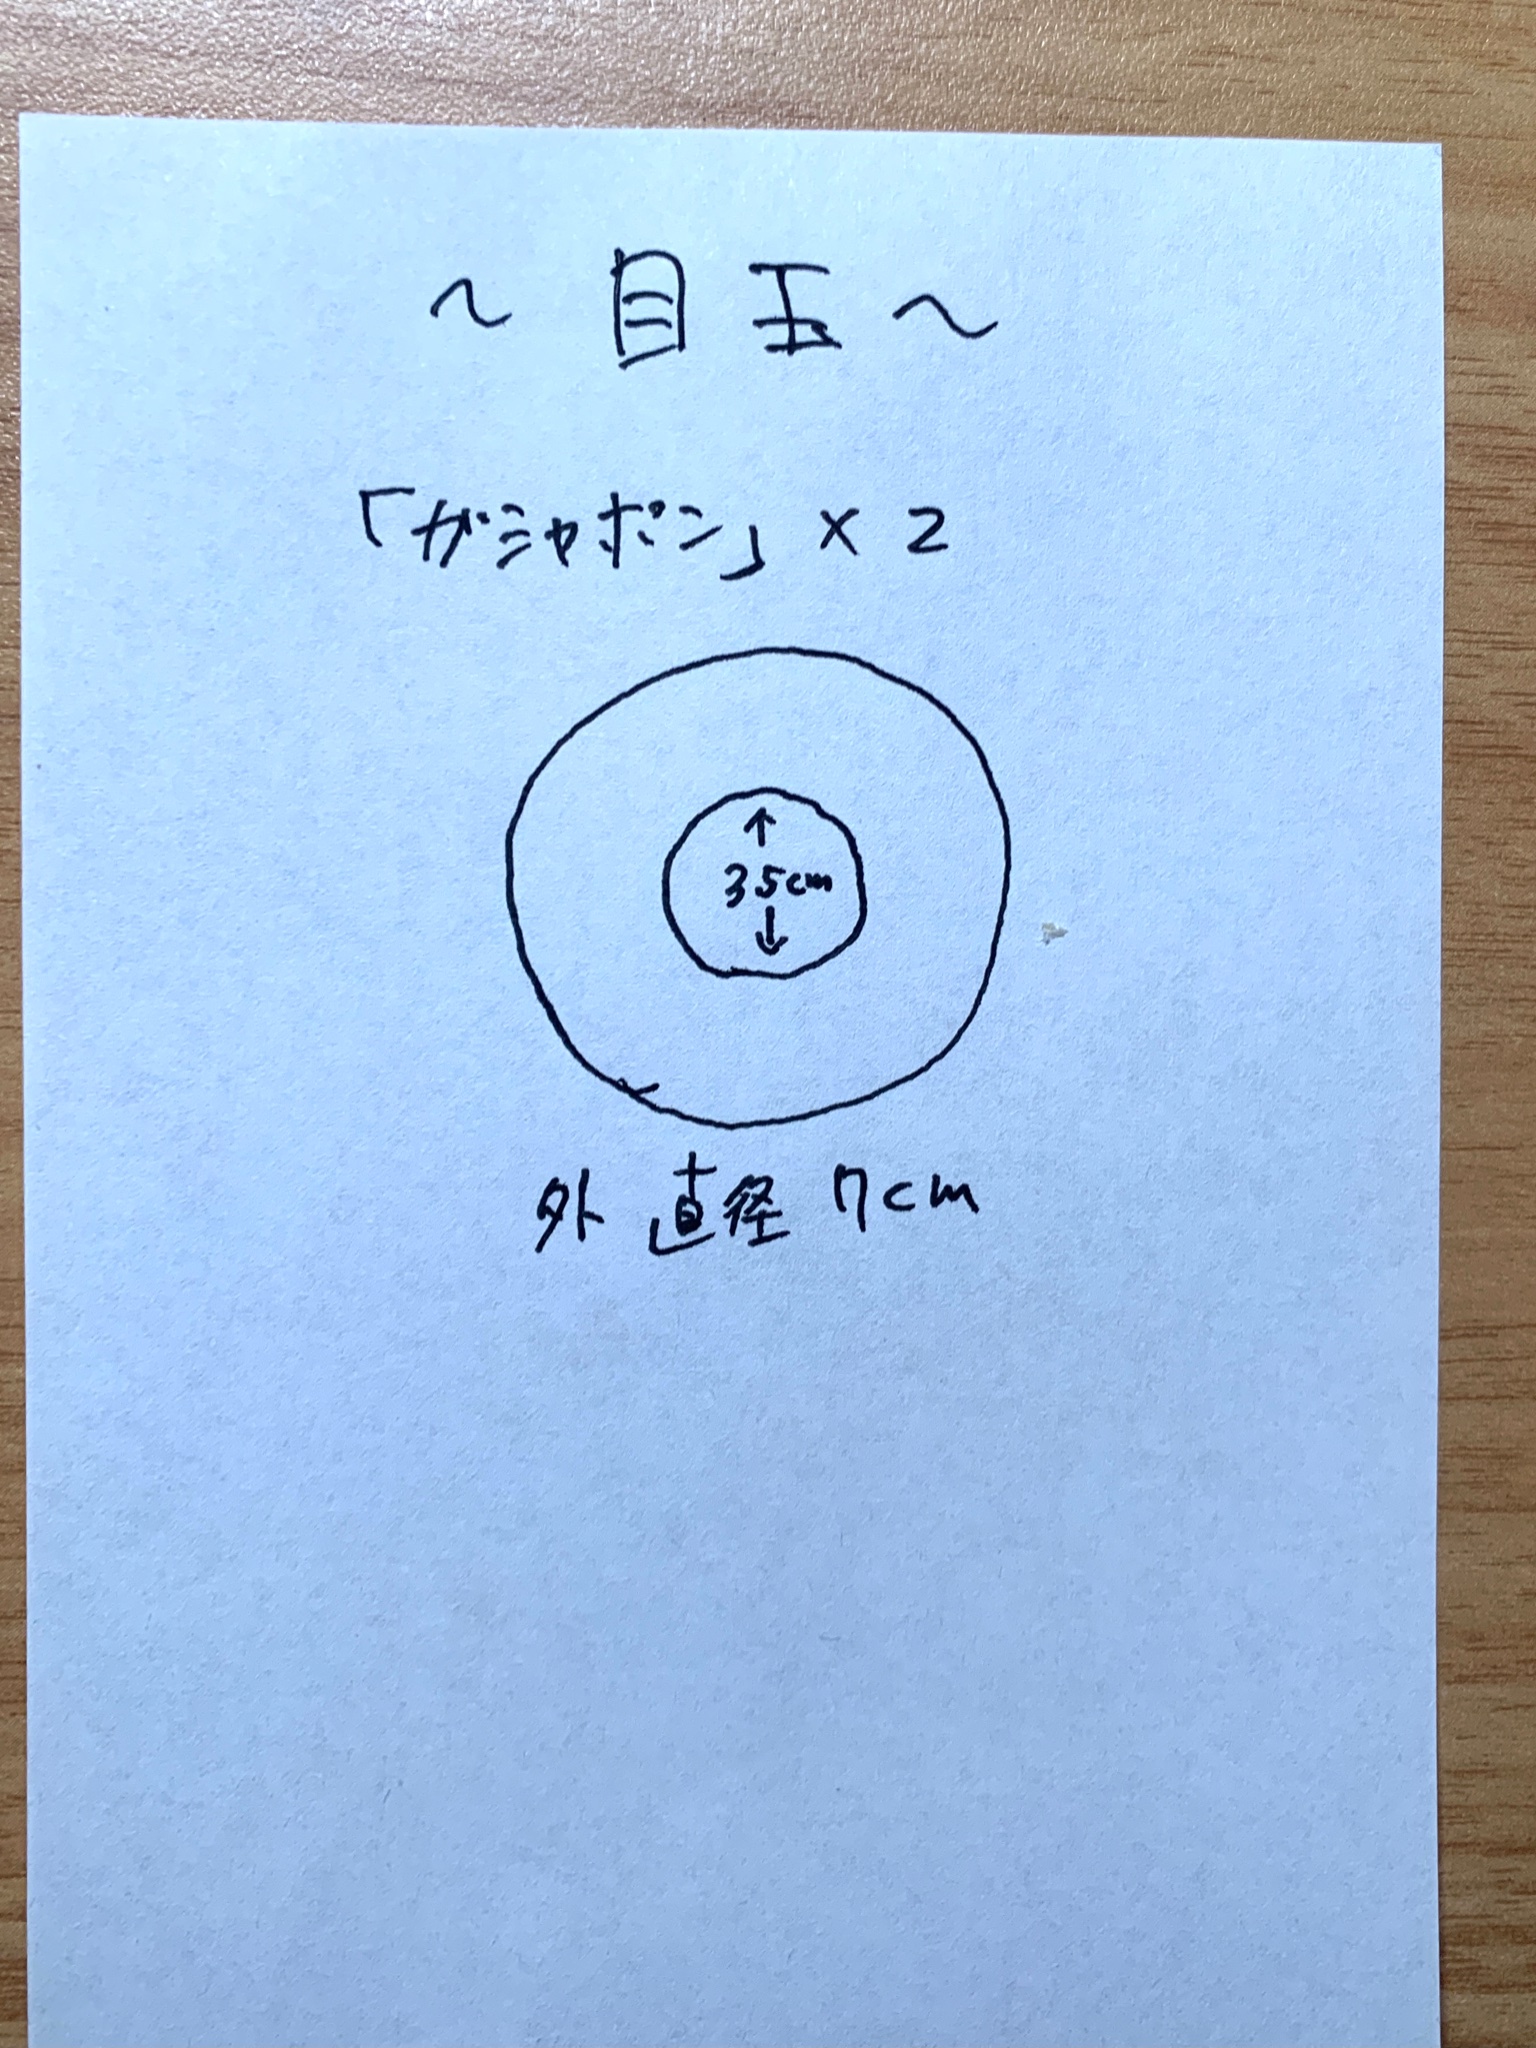 ～目玉～
「ガシャポン」×2
↑
35cm
↓
外 直径 7cm